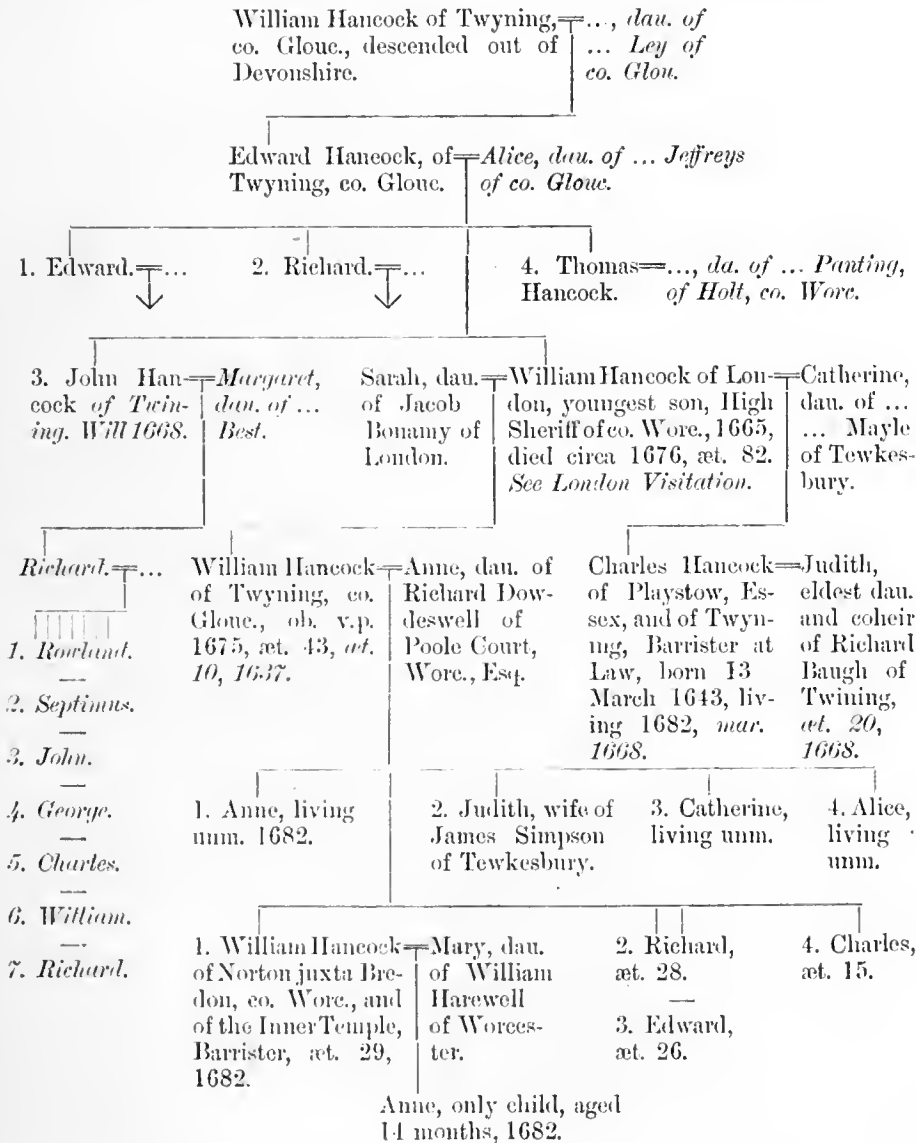 William Hancock of Twyning, ..., dau. of
co. Glouc., descended out of ... Ley of
Devonshire. co. Glou.
Edward Hancock, of Alice, dau. of ... Jeffreys
Twyning, co. Glouc. of co. Glouc.
1. Edward. ...
2. Richard. ...
4. Thomas ..., da. of ... Panting,
Hancock. of Holt, co. Worc.
3. John Han-
cock of Twin-
ing. Will 1668.
Margaret,
dau. of ...
Best.
Sarah, dau.
of Jacob
Bonamy of
London.
William Hancock of Lon-
don, youngest son, High
Sheriff of co. Worc., 1665,
died circa 1676, æt. 82.
See London Visitation.
Catherine,
dau. of ...
... Mayle
of Tewkes-
bury.
Richard. ...
1. Rowland.
—
2. Septimus.
—
3. John.
—
4. George.
—
5. Charles.
—
6. William.
—
7. Richard.
William Hancock
of Twyning, co.
Glouc., ob. v.p.
1675, æt. 43, æt.
10, 1637.
Anne, dau. of
Richard Dow-
deswell of
Poole Court,
Worc., Esq.
Charles Hancock
of Playstow, Es-
sex, and of Twyn-
ing, Barrister at
Law, born 13
March 1643, liv-
ing 1682, mar.
1668.
Judith,
eldest dau.
and coheir
of Richard
Baugh of
Twining,
æt. 20,
1668.
1. Anne, living
unm. 1682.
2. Judith, wife of
James Simpson
of Tewkesbury.
3. Catherine,
living unm.
4. Alice,
living
unm.
1. William Hancock
of Norton juxta Bre-
don, co. Worc., and
of the Inner Temple,
Barrister, æt. 29,
1682.
Mary, dau.
of William
Harewell
of Worces-
ter.
2. Richard,
æt. 28.
—
3. Edward,
æt. 26.
4. Charles,
æt. 15.
Anne, only child, aged
14 months, 1682.